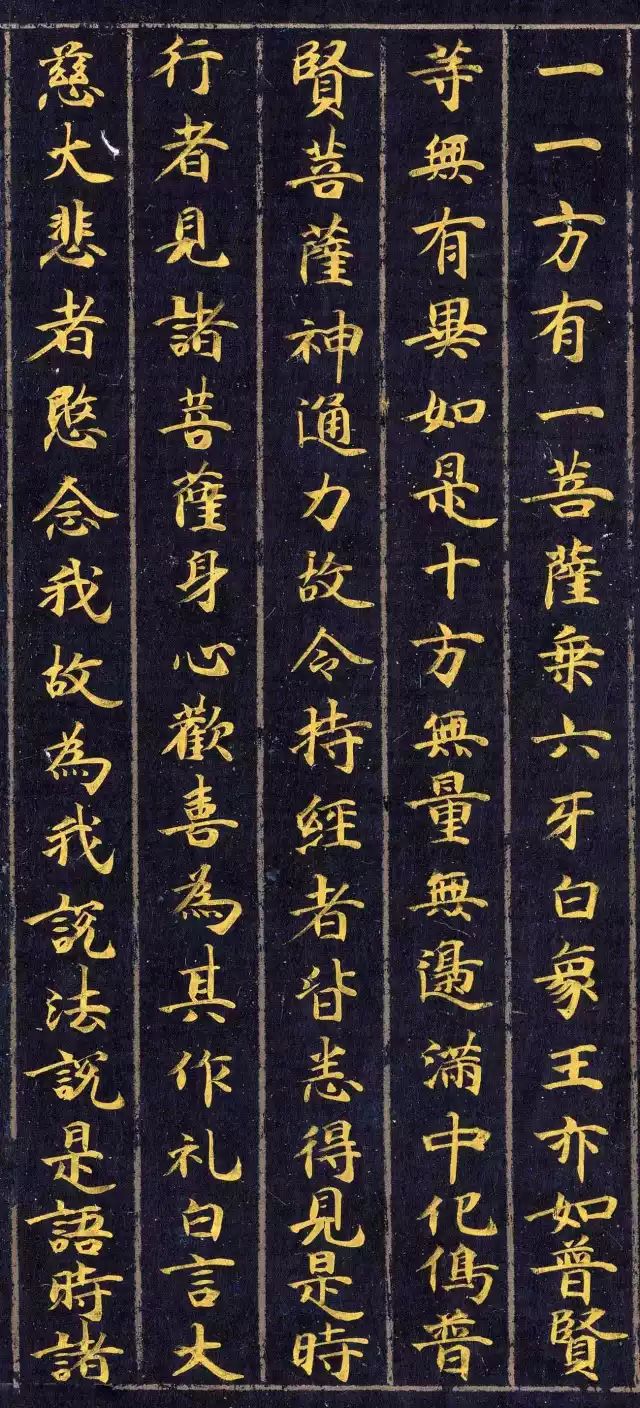 一一方有一菩薩乗六牙白象王亦如普賢
等無有異如是十方無量無邊滿中化鳥普
賢菩薩神通力故令持經者皆悉得見是時
行者見諸菩薩身心歡喜為其作礼白言大
慈大悲者愍念我故為我説法説是語時諸